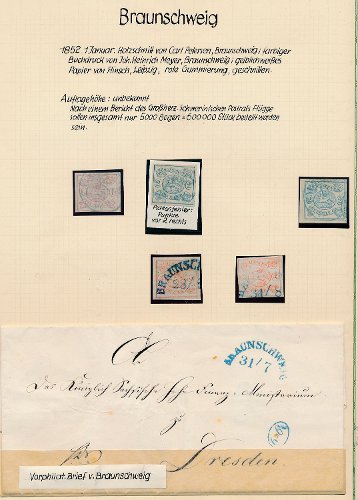 Braunschweig
1852 1 Januar. Holzschnitt von Carl Petersen, Braunschweig; farbiger
Buchdruck von Joh. Heinrich Meyer, Braunschweig; gelblichweißes
Papier von Flinsch, Leipzig, rote Gummierung, geschnitten
Auflagehöhe: unbekannt
Nach einem Bericht des Großherz. schwerinischen Postrats Flügge
sollen insgesamt nur 5000 Bogen = 600 000 Stück bestellt worden
sein.
Plattenfehler:
Punkte
vor 2 rechts
BRAUNSCHW
23/
31/8
BRAUNSCHWEIG
31/7
Das Königlich Sächsische Hohe Finanz-Ministerium
zu
Dresden.
Vorphilat. Brief v. Braunschweig